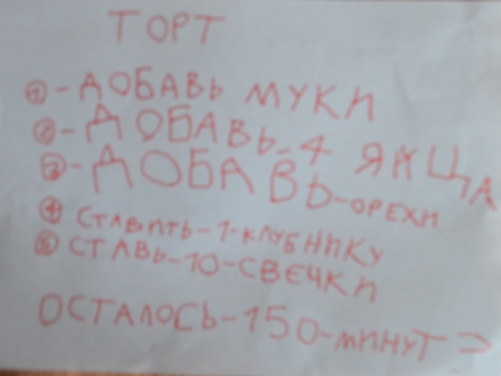 ТОРТ
①-ДОБАВЬ МУКИ
②-ДОБАВЬ-4 ЯЙЦА
③-ДОБАВЬ-ОРЕХИ
④ СТАВИТЬ-1-КЛУБНИКУ
⑤ СТАВЬ-10-СВЕЧКИ
ОСТАЛОСЬ-150-МИНУТ